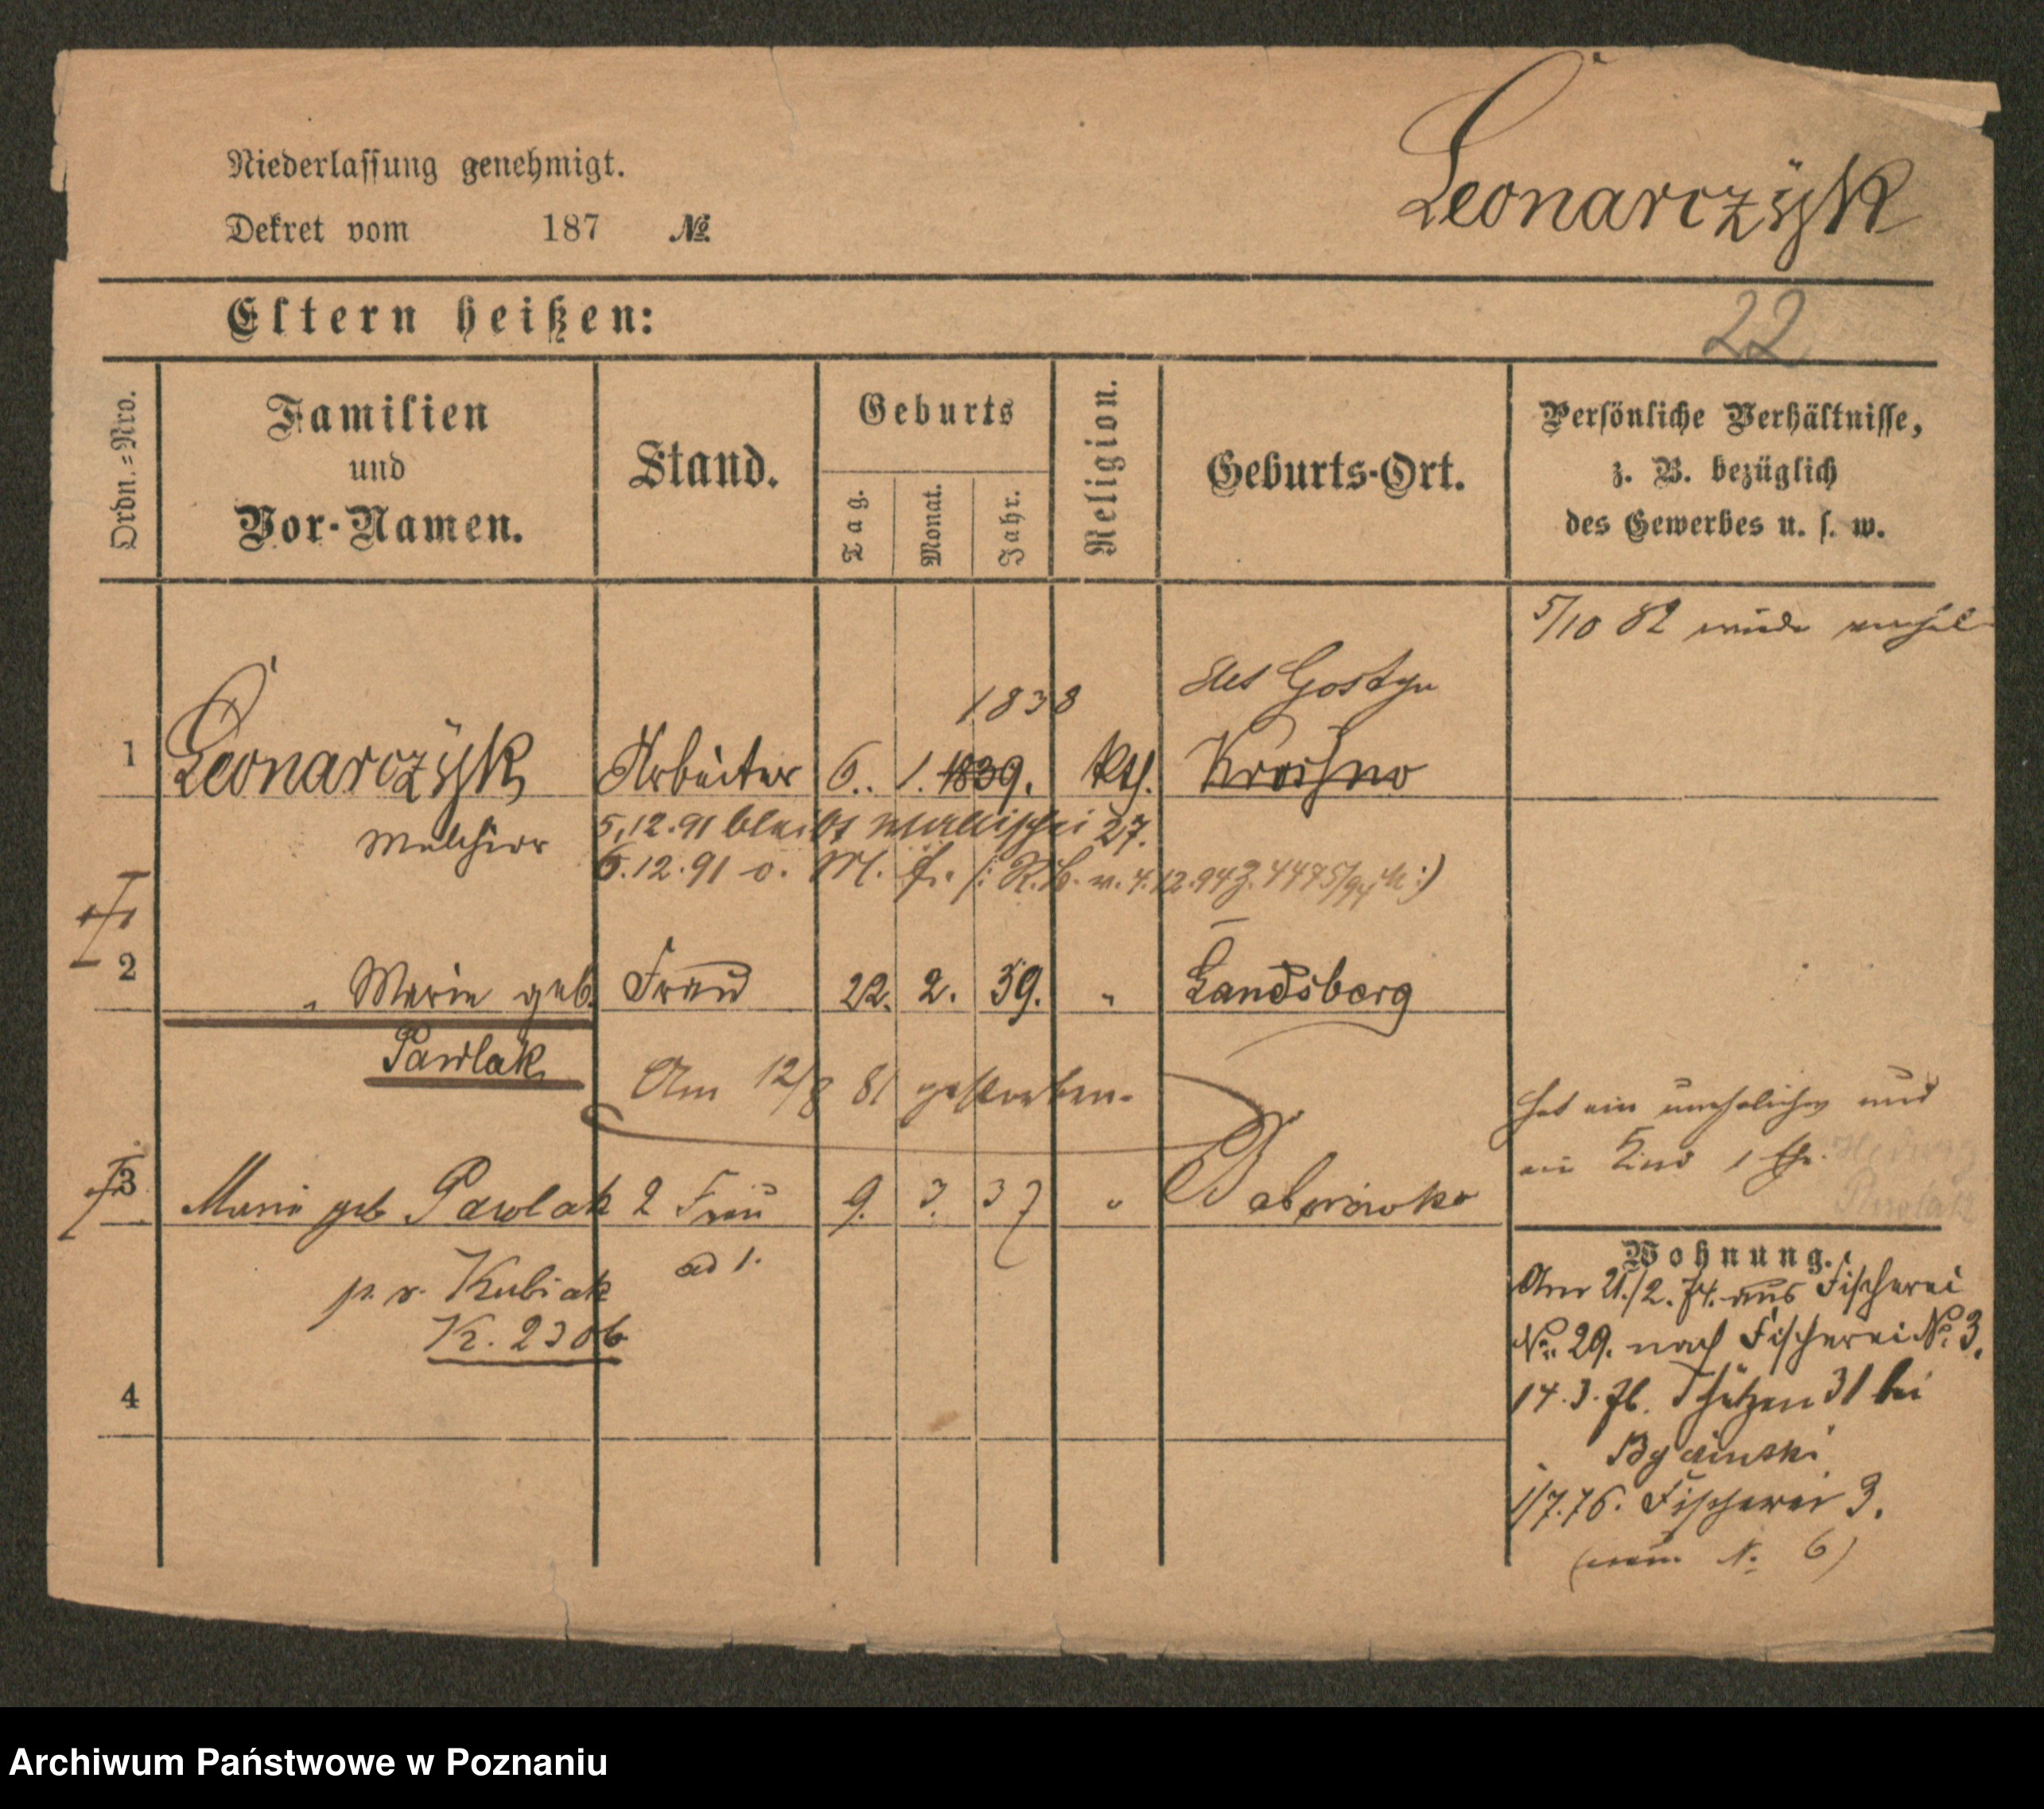 Leonarczÿk
Niederlassung genehmigt.
Dekret vom 187 №
Eltern heißen:
22
Ordn.=Nro.
Familien
und
Vor-Namen.
Stand.
Geburts
Tag.
Monat.
Jahr.
Religion.
Geburts-Ort.
Persönliche Verhältnisse,
z. B. bezüglich
des Gewerbes u. s. w.
5/10 82 wieder
1838 Gostyn
1 Leonarczÿk Arbeiter 6. 1. 1839. kth. Kroschno
Melchior
5.12.91 bleibt 27.
6.12.91 o.
2 " Marie geb. Frau 22. 2. 39. " Landsberg
Pawlak
Am 12/8 81 gestorben.
hat ein uneheliches und
ein Kind
Pawlak
3 Marie geb Pawlak 2 Frau 9. 3. 37 " Daborowko
ad 1.
p. v. Kubiak
K. 2306
4
Wohnung.
Am 21./2. 74. aus Fischerei
No. 29. nach Fischerei No. 3.
14.3.76. Schützen 31 bei
1/7.76. Fischerei 3.
(neue N. 6)
Archiwum Państwowe w Poznaniu